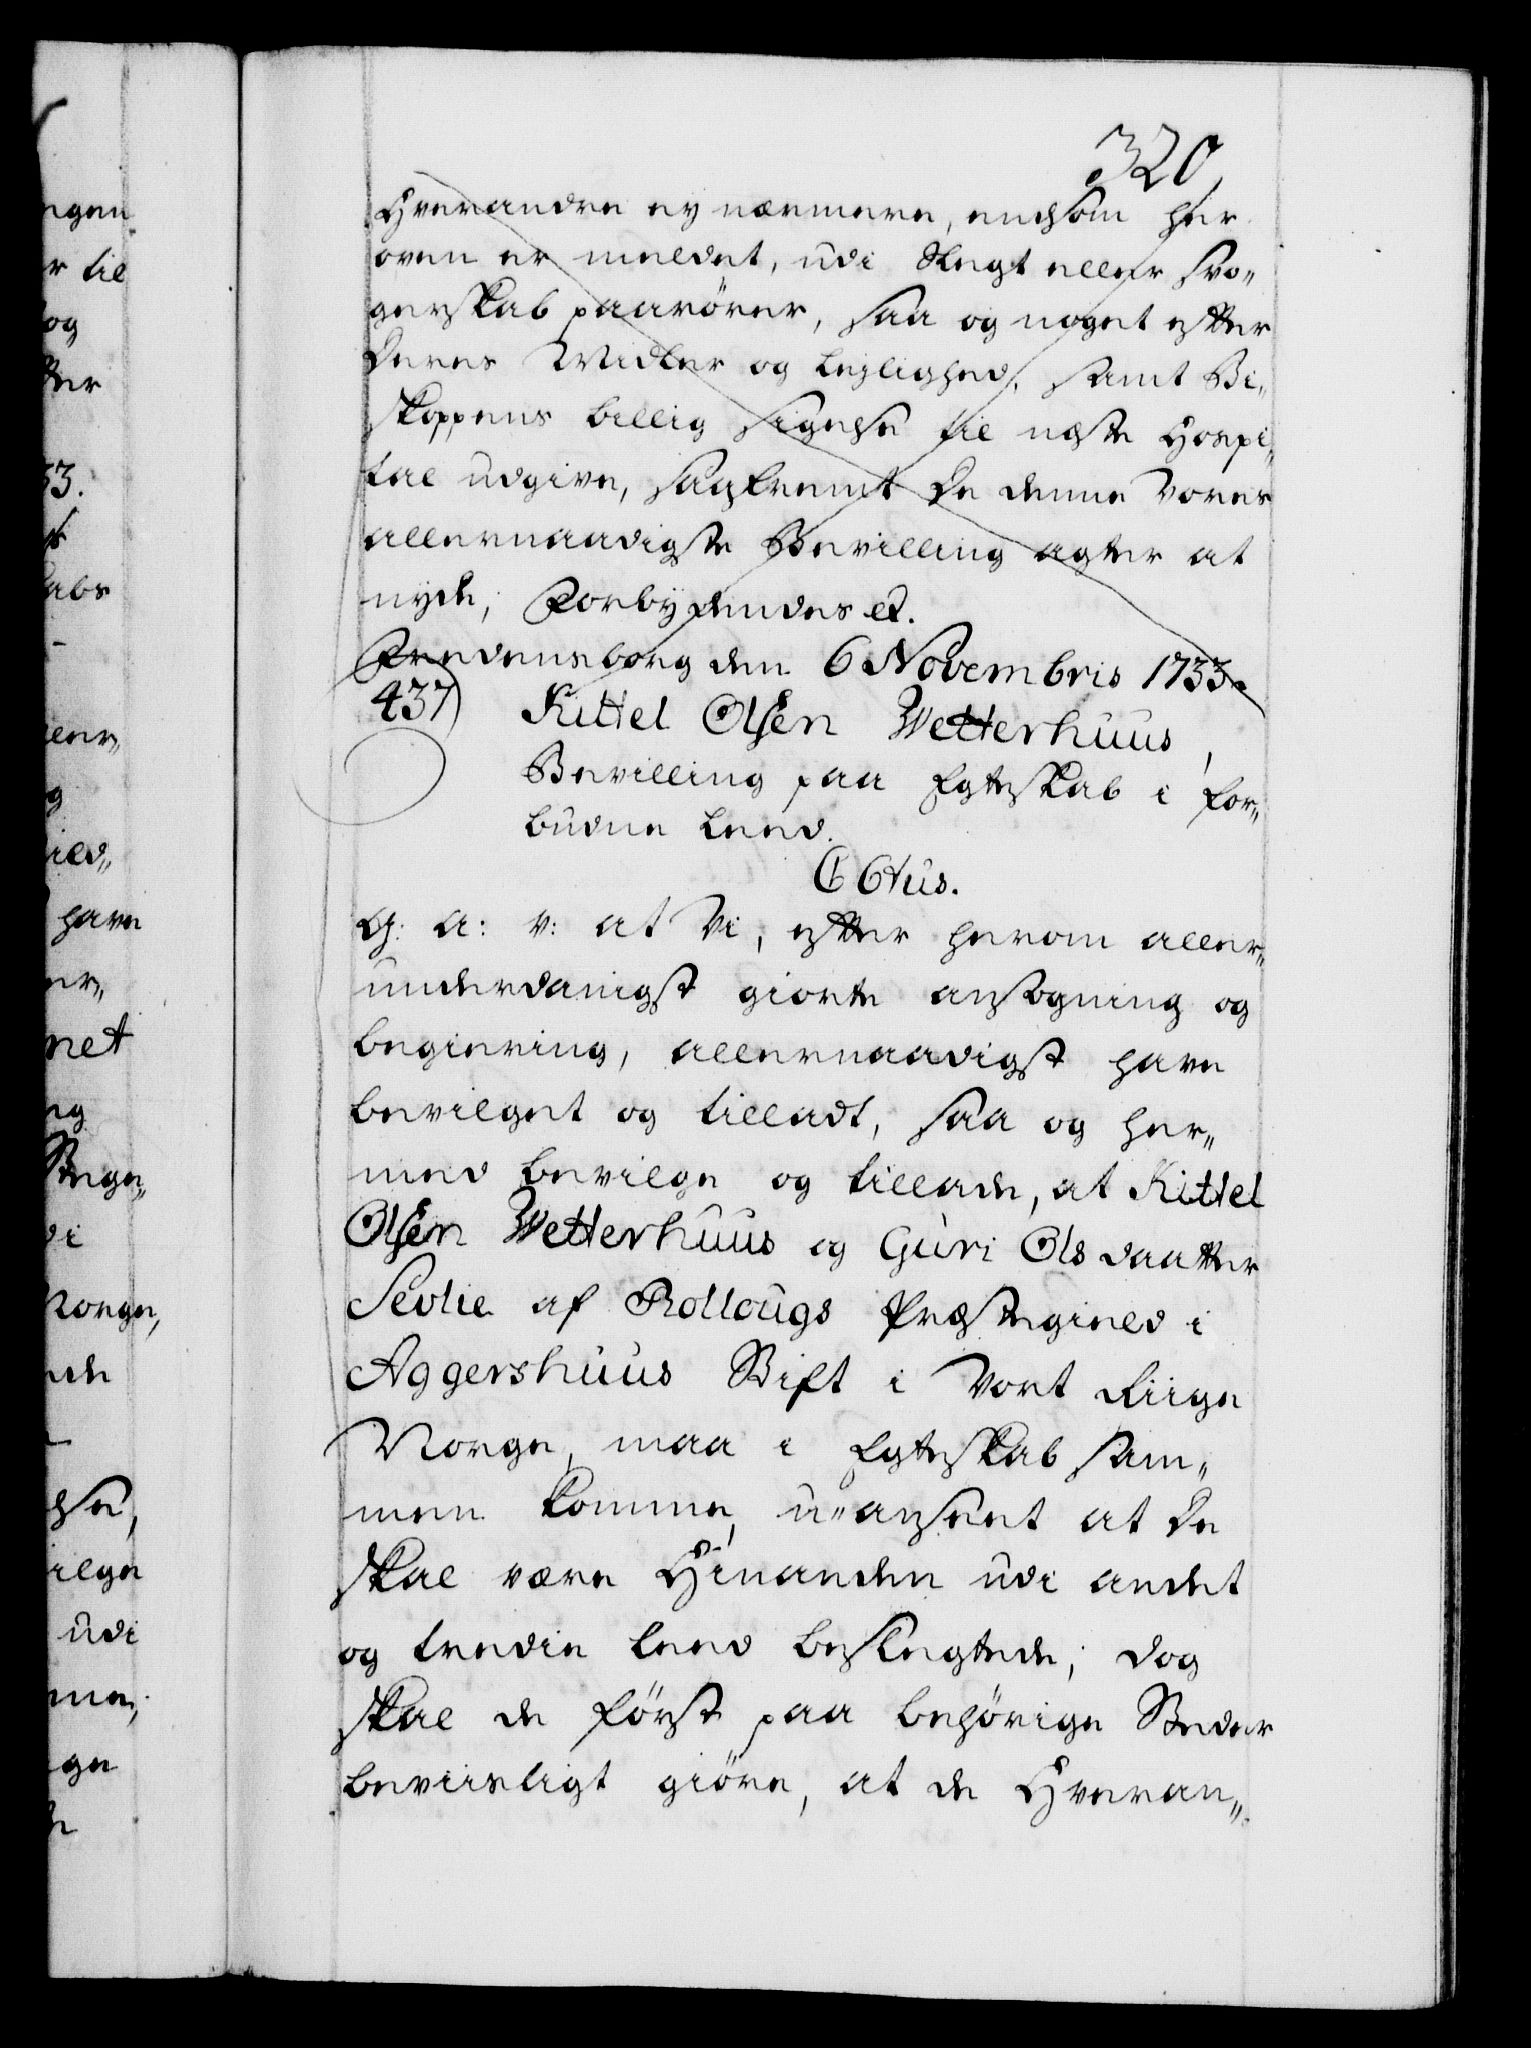 320
Hverandre ey nærmere, endsom her
oven er meldet, udi Slegt eller Svo„
gerskab paarörer, saa og noget efter
deres Midler og leylighed, samt Bi„
skoppens billig Sigelse til neste Hospi„
tal udgive, saafremt De denne Vores
allernaadigste Bevilling agter at
nyde; Forbydendes et.
Fredensborg den 6 Novembris 1733.
437) Kittel Olsen Wetterhuus,
Bevilling paa Egteskab i for„
budne leed.
C 6tus.
G: A: V: at Vi, efter herom aller„
underdanigst giorte ansøgning og
begiering, allernaadigst have
bevilget og tilladt, saa og her„
med bevilge og tillade, at Kittel
Olsen Wetterhuus og Guri Ols daatter
Sevlie af Rollougs Præstegield i
Aggershuus Stift i Vort Riige
Norge, maa i Egteskab sam„
men komme, u-anseet at De
skal være Hinanden udi andet
og tredie leed beslegtede; dog
skal de först paa behörige Steder
beviisligt giöre, at de Hveran„
egen
r til
og
ter
33.
abs
ild„
have
er„
net
ng
Norge,
de
lse,
ilge
udi
ge